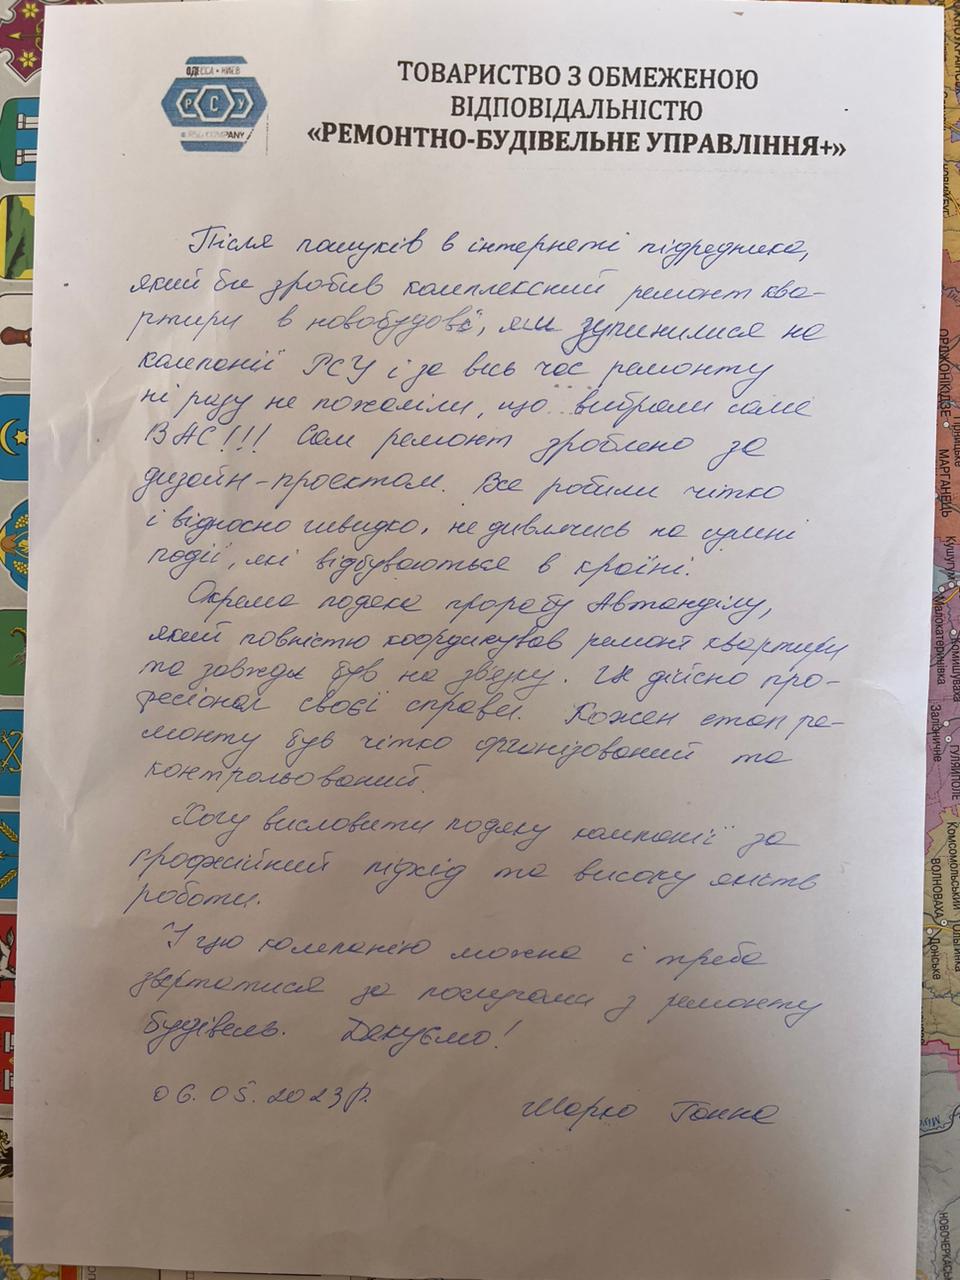 ОДЕССА • КИЕВ
РСУ
RSU COMPANY
ТОВАРИСТВО З ОБМЕЖЕНОЮ
ВІДПОВІДАЛЬНІСТЮ
«РЕМОНТНО-БУДІВЕЛЬНЕ УПРАВЛІННЯ+»
Після пошуків в інтернеті підрядника,
який би зробив комплексний ремонт ква-
ртири в новобудові, ми зупинилися на
компанії РСУ і за весь час ремонту
ні разу не пожаліли, що вибрали саме
ВАС!!! Сам ремонт зроблено за
дизайн-проєктом. Все робили чітко
і відносно швидко, не дивлячись на сумні
події, які відбуваються в країні.
Окрема подяка прорабу Автанділу,
який повністю координував ремонт квартири
та завжди був на зв'язку. Це дійсно про-
фесіонал своєї справи. Кожен етап ре-
монту був чітко організований та
контрольований.
Хочу висловити подяку компанії за
професійний підхід та високу якість
роботи.
У цю компанію можна і треба
звертатися за послугами з ремонту
будівель. Дякуємо!
06.05.2023р.
Ганна
ОРДЖОНІКІДЗЕ
МАРГАНЕЦЬ
Кушугум
Малокатеринівка
Комишуваха
ГУЛЯЙПОЛЕ
Комсомольський
ВОЛНОВАХА
Донське